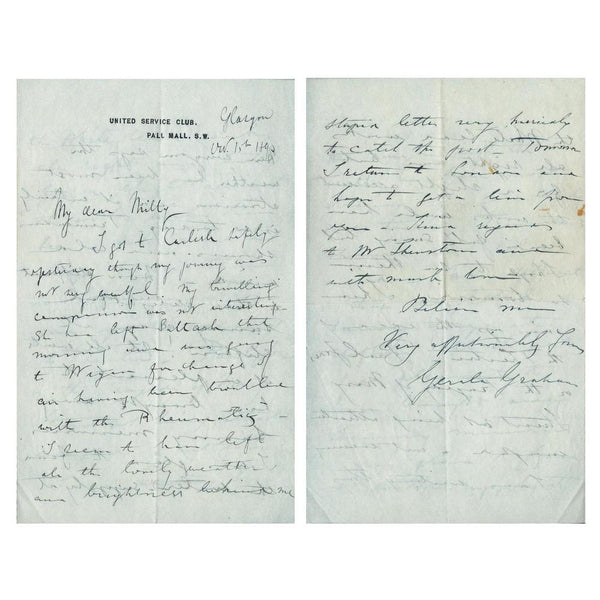 UNITED SERVICE CLUB,
PALL MALL, S.W.
Glasgow
Oct. 15th
My dear Milly
I got to Carlisle safely
yesterday though my journey was
not very My travelling
companion was not interesting
She has left Saltash that
morning and was going
to Wigan for change of
air having been troubled
with the Rheumatics
I seem to have left
all the lovely weather
and brightness behind me
stupid letter very hurriedly
to catch the post Tomorrow
I return to London and
hope to get a line from
you. Kind regards
to Mr Thurston and
with much love
Believe me
Very affectionately Yours
Gerald Graham